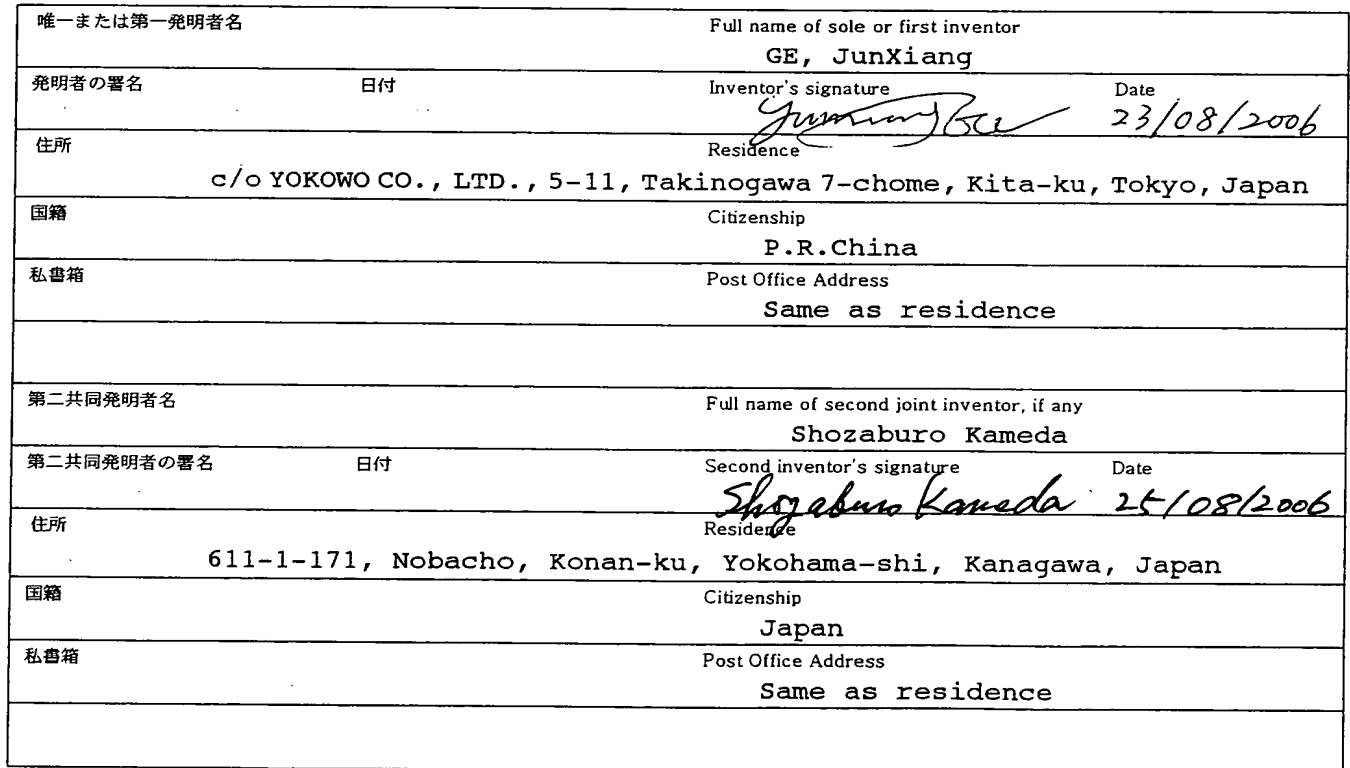 唯一または第一発明者名 Full name of sole or first inventor
GE, JunXiang
発明者の署名 日付 Inventor's signature Date
JunXiang Ge 23/08/2006
住所 Residence
c/o YOKOWO CO., LTD., 5-11, Takinogawa 7-chome, Kita-ku, Tokyo, Japan
国籍 Citizenship
P.R.China
私書箱 Post Office Address
Same as residence
第二共同発明者名 Full name of second joint inventor, if any
Shozaburo Kameda
第二共同発明者の署名 日付 Second inventor's signature Date
Shozaburo Kameda 25/08/2006
住所 Residence
611-1-171, Nobacho, Konan-ku, Yokohama-shi, Kanagawa, Japan
国籍 Citizenship
Japan
私書箱 Post Office Address
Same as residence